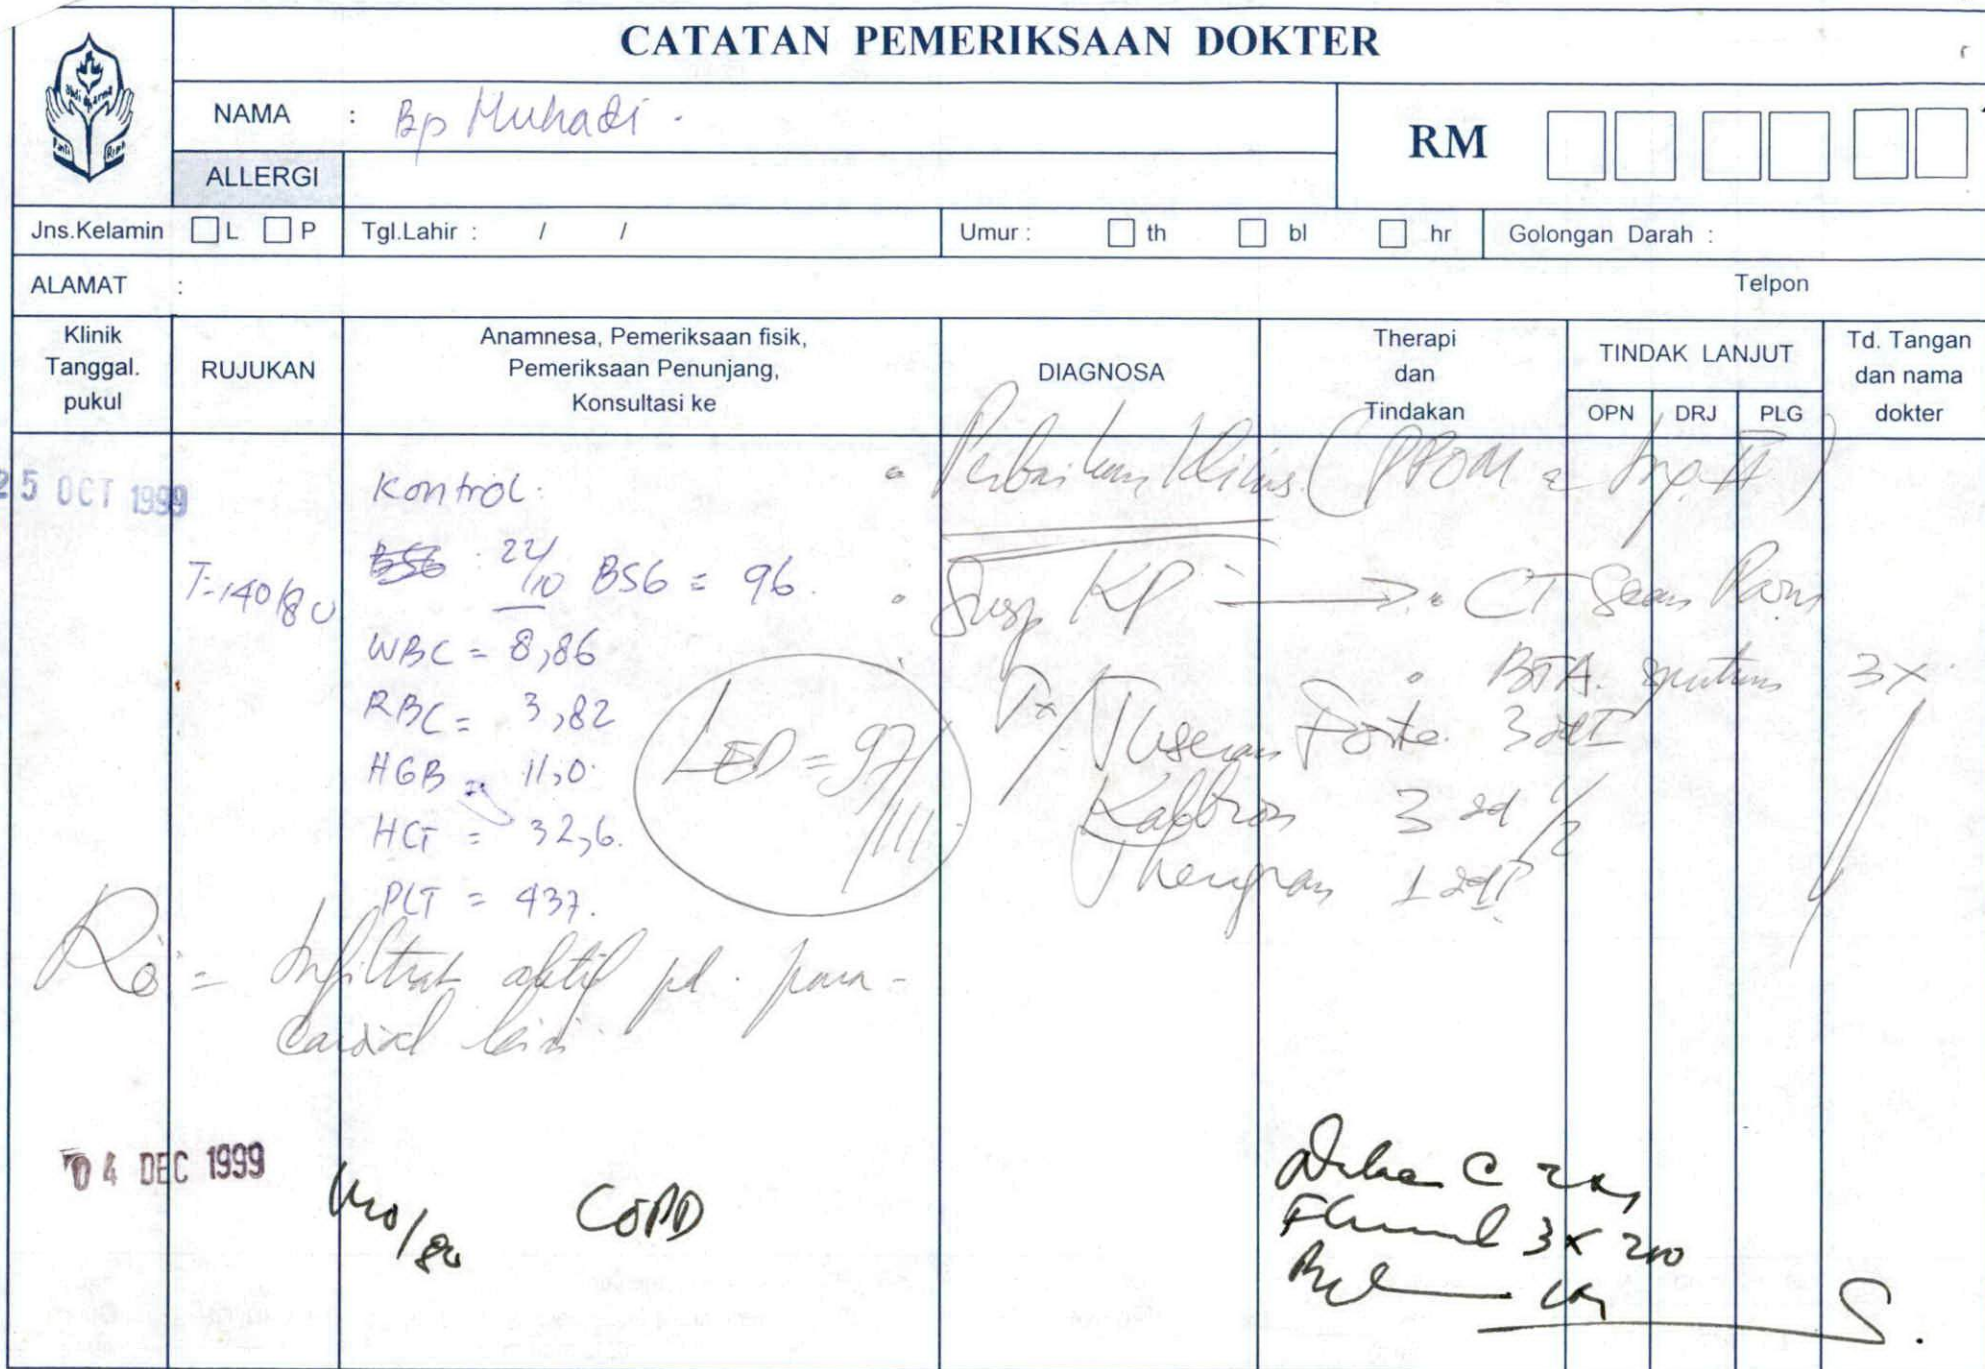 CATATAN PEMERIKSAAN DOKTER
NAMA : Bp Muhadi.
RM
ALLERGI
Jns.Kelamin L P Tgl.Lahir : / / Umur : th bl hr Golongan Darah :
ALAMAT : Telpon
Klinik
Tanggal.
pukul
RUJUKAN
Anamnesa, Pemeriksaan fisik,
Pemeriksaan Penunjang,
Konsultasi ke
DIAGNOSA
Therapi
dan
Tindakan
TINDAK LANJUT
OPN DRJ PLG
Td. Tangan
dan nama
dokter
25 OCT 1999
T=140/80
Kontrol.
BSG : 22/10 BSG = 96.
WBC = 8,86
RBC = 3,82
HGB = 11,0.
HCT = 32,6.
PLT = 437.
LED = 97/111
Ro = Infiltrat aktif pd. para-
cardial
Perbaikan klinis (PPOM
Susp KP → CT Scan
BTA sputum 3x
Forte
3
1
04 DEC 1999
140/80 COPD
C
3 x 200